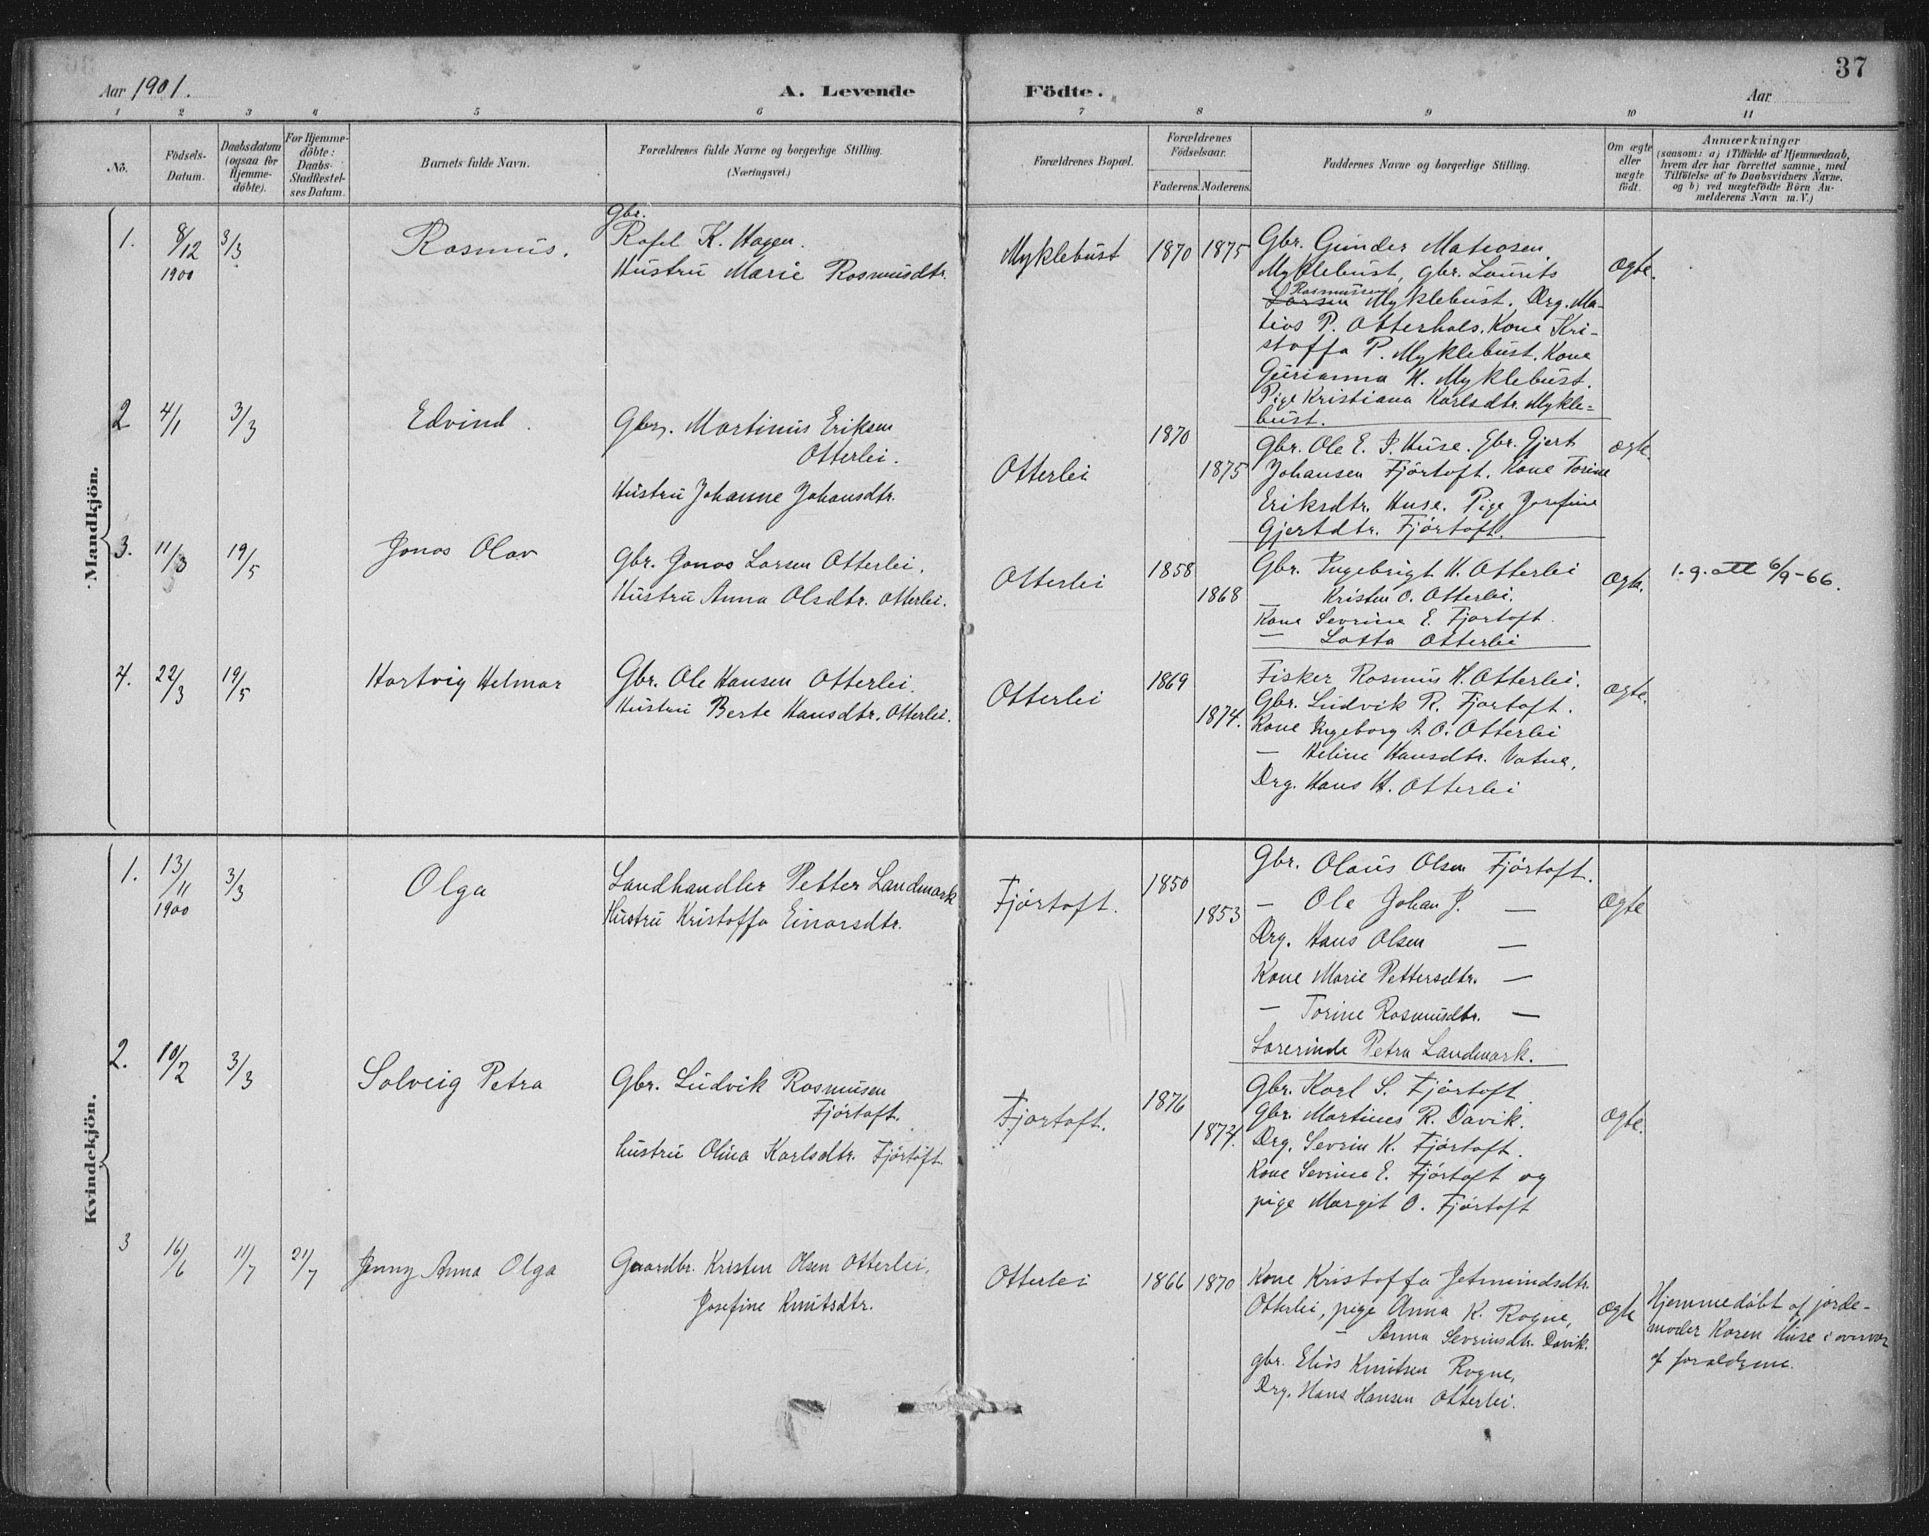 37
Aar 1901.
A. Levende Födte.
Aar
1 2 3 4 5 6 7 8 9 10 11
No.
Födsels-Datum.
Daabsdatum (ogsaa for Hjemme-döbte).
For Hjemme-döbte: Daabs-Stadfæstel-ses Datum.
Barnets fulde Navn.
Forældrenes fulde Navne og borgerlige Stilling.
(Næringsvei.)
Forældrenes Bopæl.
Forældrenes Födselsaar.
Faderens. Moderens.
Faddernes Navne og borgerlige Stilling.
Om ægte eller uægte födt.
Anmærkninger
(saasom: a) i Tilfælde af Hjemmedaab,
hvem der har forrettet samme, med
Tilföielse af to Daabsvidners Navne,
og b) ved uægtefödte Börn An-
melderens Navn m. V.)
Mandkjön.
1. 8/12 1900 3/3 Rasmus.
Gbr.
Rafel K. Hagen.
Hustru Marie Rasmusdtr.
Myklebust 1870 1875
Gbr. Gunder Matiosen
Myklebust, gbr. Laurits
Rasmussen
Larsen Myklebust. Drg. Ma-
tios P. Otterhals. Kone Kri-
stoffa P. Myklebust. Kone
Gurianna H. Myklebust.
Pige Kristiana Karlsdtr. Mykle-
bust.
Ægte.
2 4/1 3/3 Edvind.
Gbr. Martinus Eriksen
Otterlei.
Hustru Johanne Johansdtr.
Otterlei 1870 1875
Gbr. Ole E. I. Huse. Gbr. Gjert
Johansen Fjørtoft. Kone Torine
Eriksdtr. Huse. Pige Josefine
Gjertdtr. Fjørtoft.
Ægte.
3. 11/3 19/5 Jonas Olav
Gbr. Jonas Larsen Otterlei.
Hustru Anna Olsdtr. Otterlei.
Otterlei 1858 1868
Gbr. Ingebrigt H. Otterlei
— Kristen O. Otterlei.
Kone Sevrine E. Fjørtoft.
— Lotta Otterlei
Ægte. 1. g. att 6/9-66.
4. 22/3 19/5 Hartvig Helmar
Gbr. Ole Hansen Otterlei.
Hustru Berte Hansdtr. Otterlei.
Otterlei 1869 1874.
Fisker Rasmus H. Otterlei.
Gbr. Ludvik R. Fjørtoft.
Kone Ingeborg A. O. Otterlei
— Heline Hansdtr. Vatne.
Drg. Hans H. Otterlei
Ægte.
Kvindekjön.
1. 13/11 1900 3/3 Olga
Landhandler Petter Landmark
Hustru Kristoffa Einarsdtr.
Fjørtoft. 1850 1853
Gbr. Olaus Olsen Fjørtoft.
— Ole Johan J. —
Drg. Hans Olsen —
Kone Marie Pettersdtr. —
— Torine Rasmusdtr. —
Lærerinde Petra Landmark.
Ægte
2. 10/2 3/3 Solveig Petra
Gbr. Ludvik Rasmusen
Fjørtoft.
hustru Olina Karlsdtr. Fjørtoft
Fjørtoft. 1876 1877.
Gbr. Karl S. Fjørtoft.
Gbr. Martines R. Davik.
Drg. Sevrin K. Fjørtoft.
Kone Sevrine E. Fjørtoft og
pige Margit O. Fjørtoft
Ægte.
3 16/6 11/7 21/7 Jenny Anna Olga
Gaardbr. Kristen Olsen Otterlei,
Josefine Knutsdtr.
Otterlei 1866 1870
Kone Kristoffa Jetmundsdtr.
Otterlei, pige Anna K. Rogne,
— Anna Sevrinsdtr. Davik.
gbr. Elias Knutsen Rogne,
Drg. Hans Hansen Otterlei.
Ægte
Hjemmedøbt af jorde-
moder Karen Huse i overvær
af forældrene.